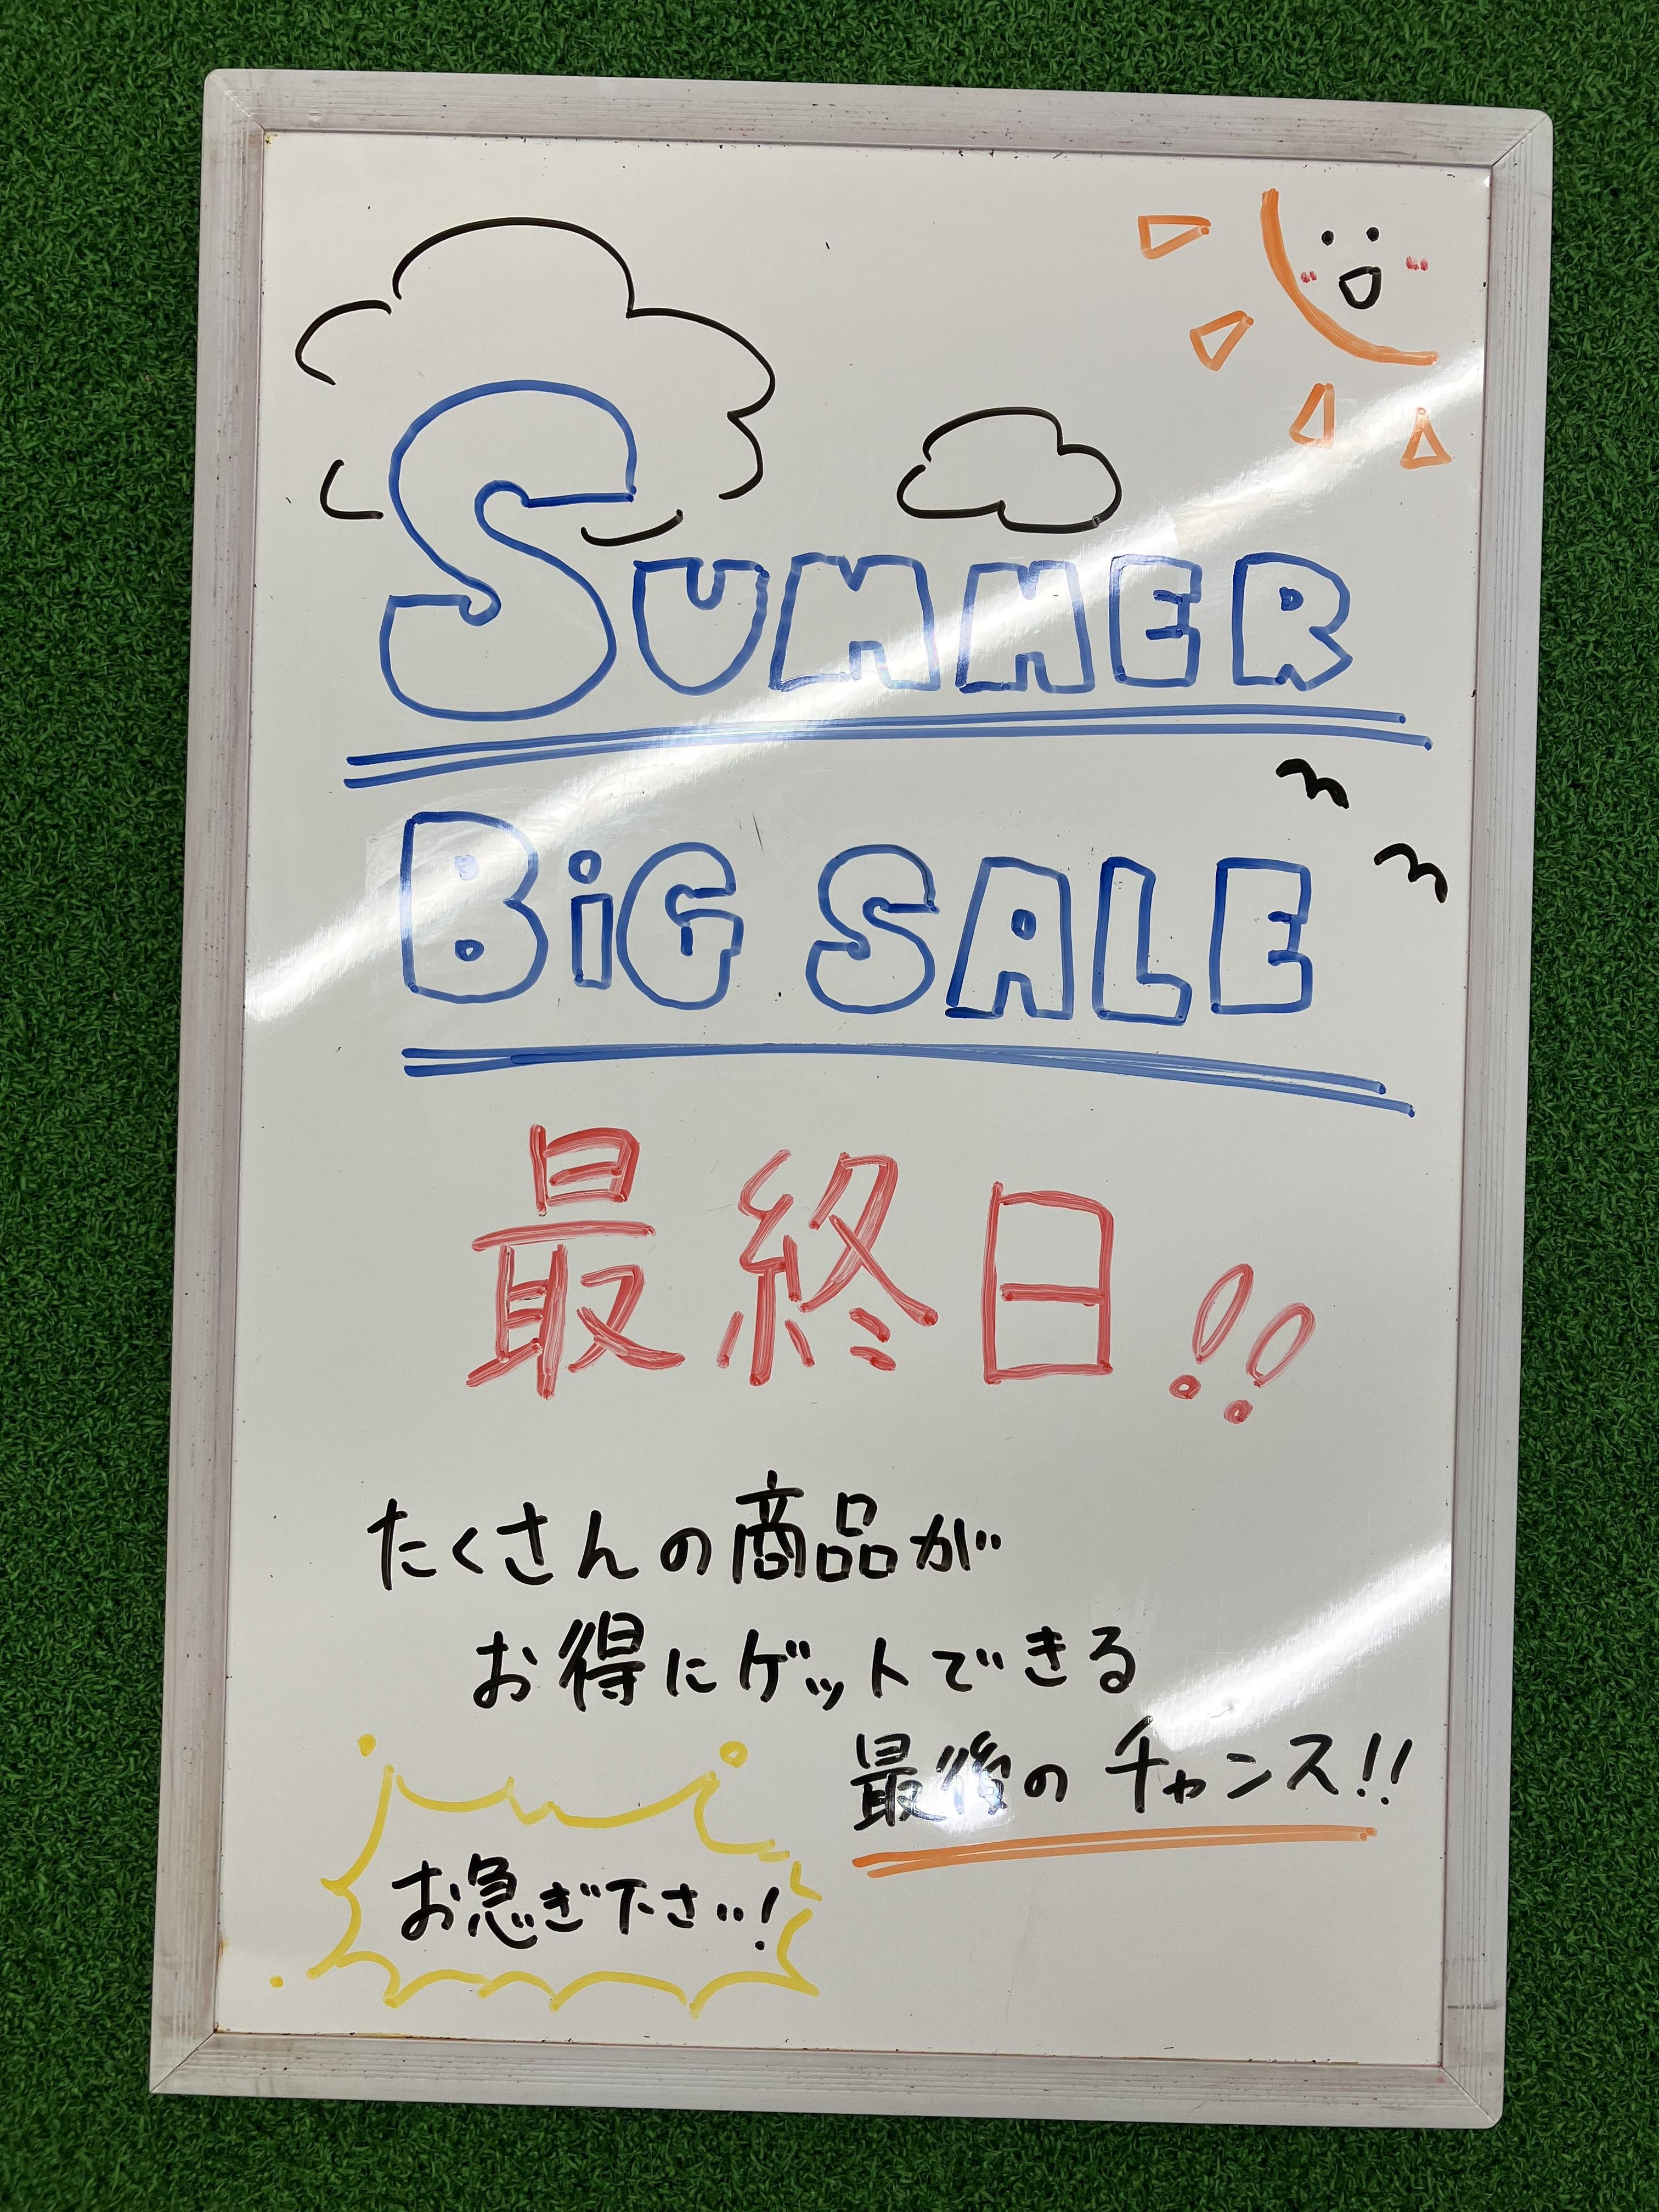 SUMMER
BiG SALE
最終日!!
たくさんの商品が
お得にゲットできる
最後のチャンス!!
お急ぎ下さい!